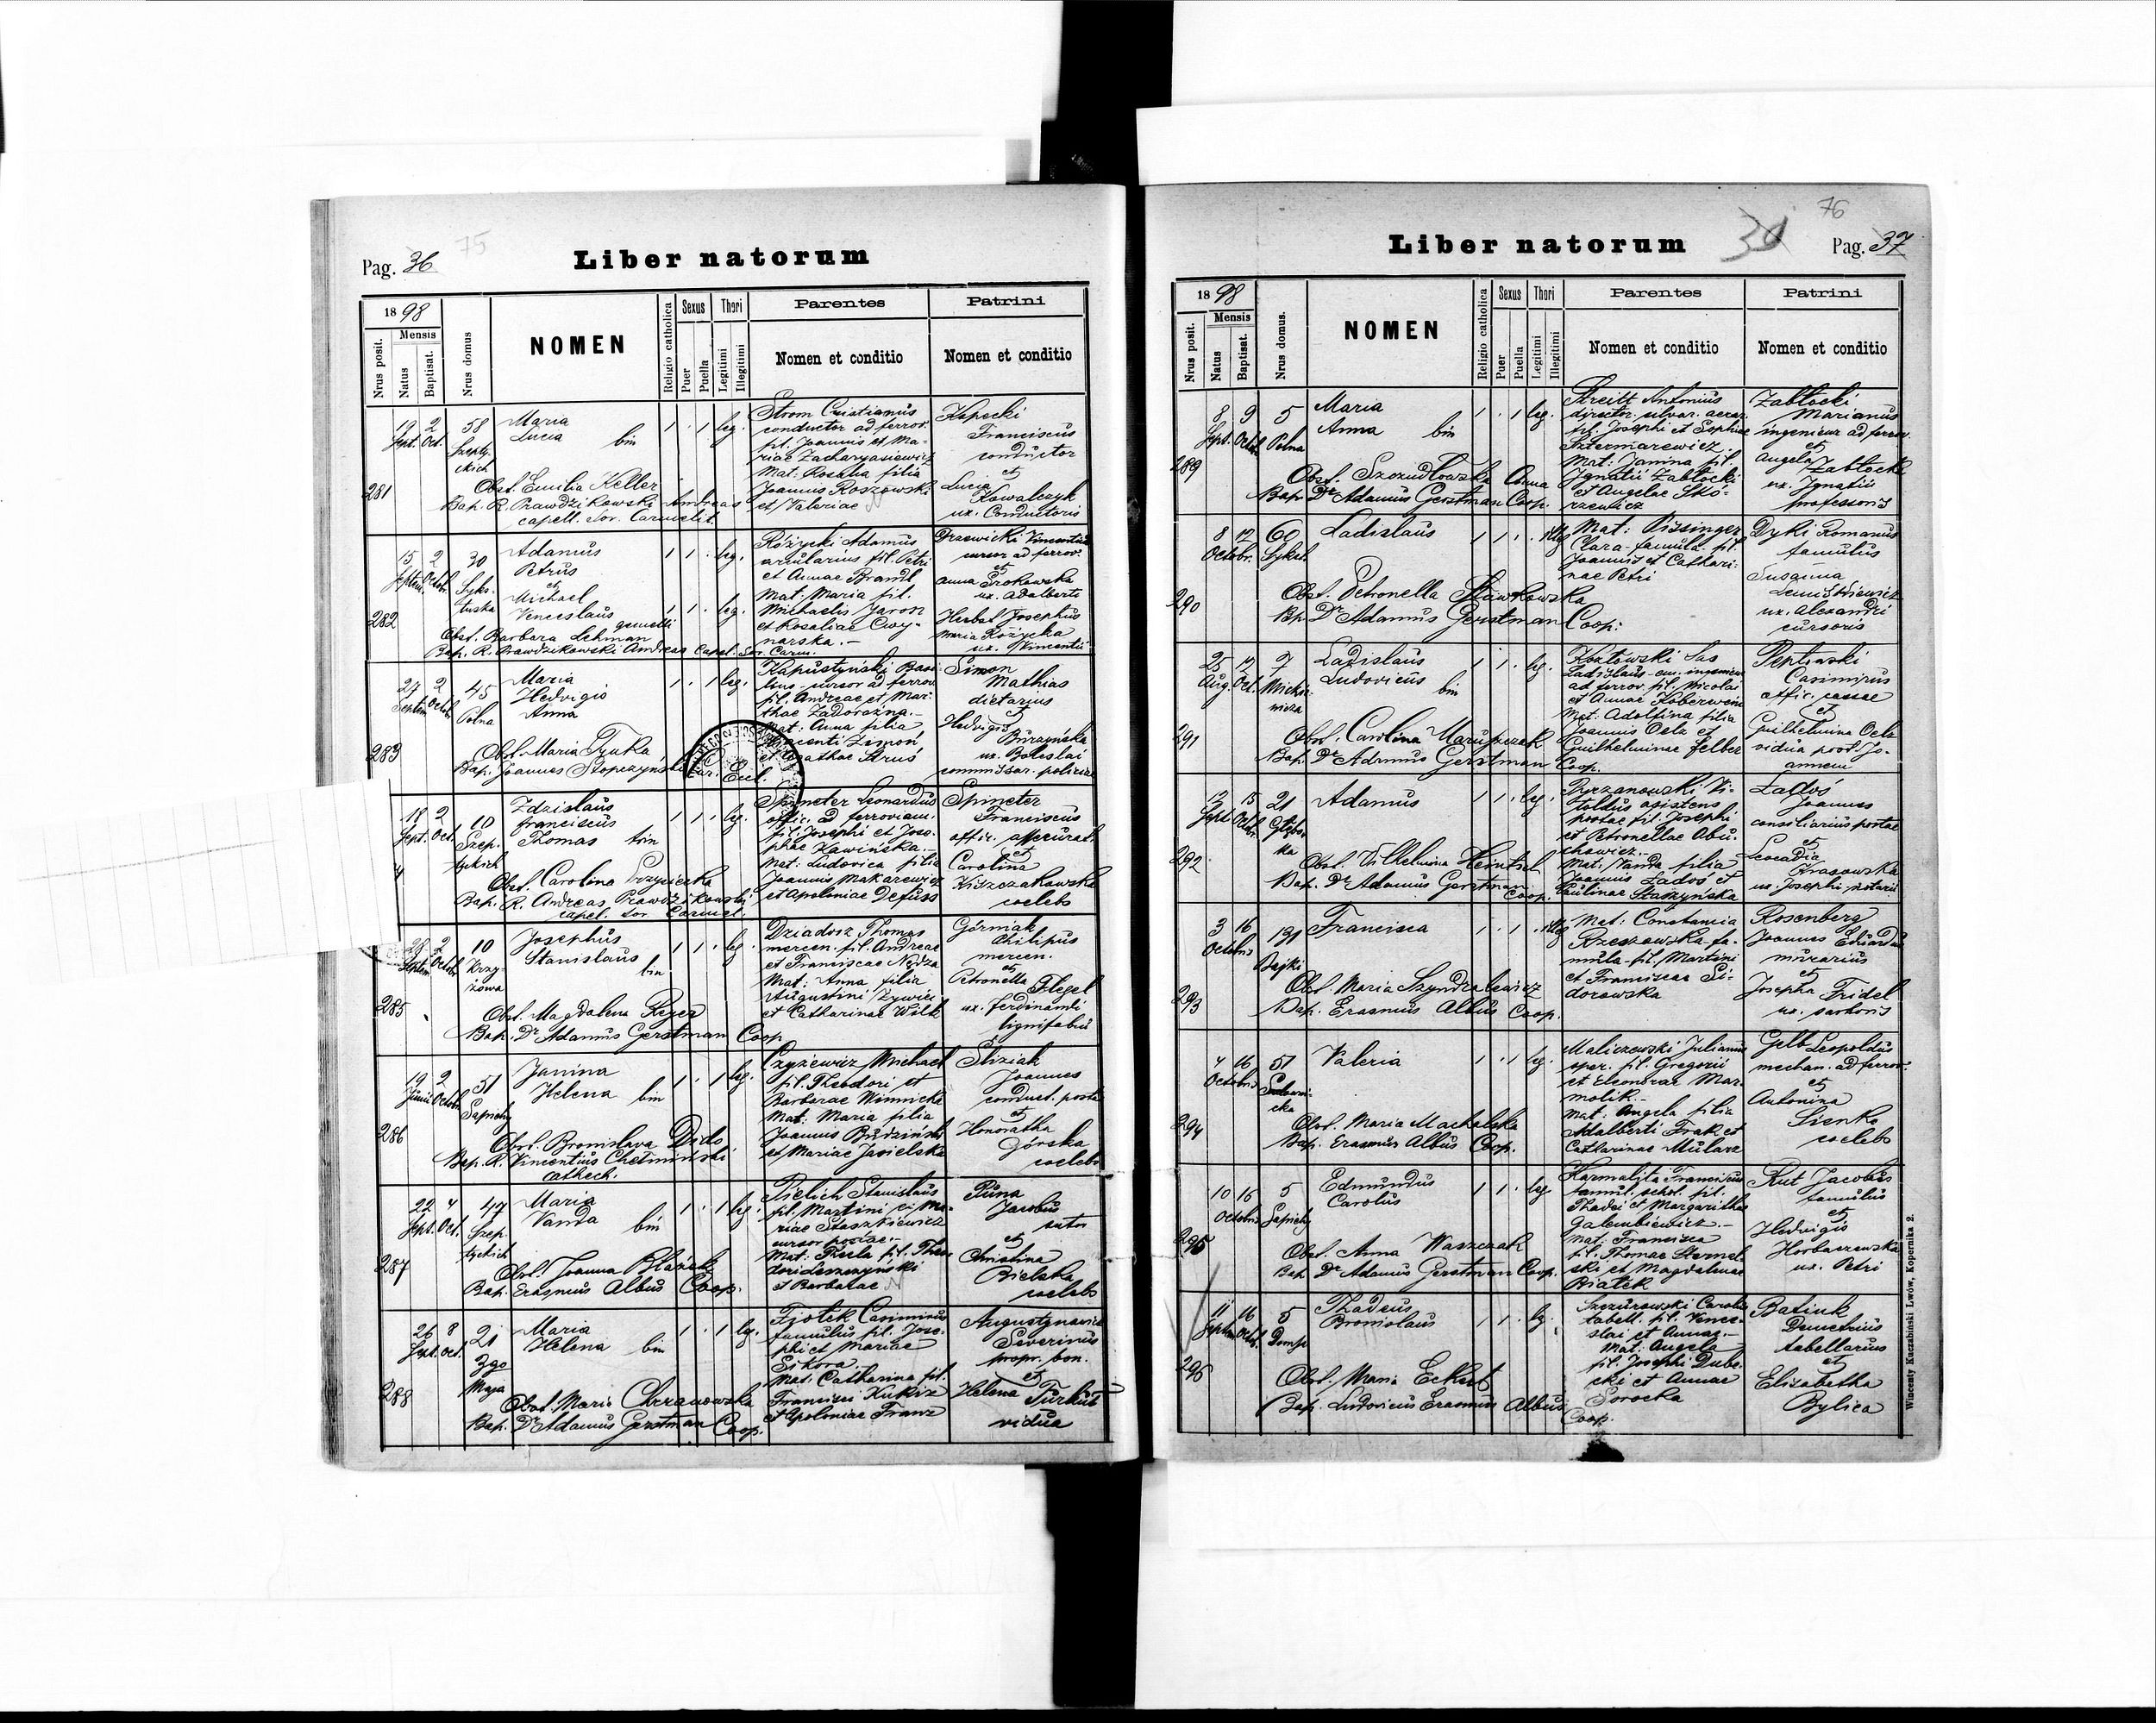 75
Liber natorum
Pag. 36
1898
Mensis
Nrus posit.
Natus
Baptisat.
Nrus domus
NOMEN
Religio catholica
Sexus
Puer
Puella
Thori
Legitimi
Illegitimi
Parentes
Nomen et conditio
Patrini
Nomen et conditio
281
19 Sept.
2 Oct.
58
Szepty-
ckich
Maria
Lucia bin
1 1 leg.
Obst. Emilia Keller
Bap. R. Prawdzikowski Andreas
capell. Sor. Carmelit.
Strom Cristianus
conductor ad ferrov.
fil. Joannis et Ma-
riae Zacharyasiewicz
Mat: Rosalia filia
Joannis Roszowski
et Valeriae N
Kopecki
Franciscus
conductor
et
Lucia
Kowalczyk
ux. Conductoris
282
15 Septem.
2 Octob.
30
Syks-
tuska
Adamus
Petrus
et
Michael
Venceslaus
gemelli
1 1 leg.
1 1 leg.
Obst. Barbara Lehman
Bap. R. Prawdzikowski Andreas Capel. Sor. Carm.
Różycki Adamus
fil. Petri
et Annae Brandl
Mat: Maria fil.
Michaelis Jarosz
et Rosaliae Cwy-
narska.
Vincentius
cursor ad ferrov.
et
Anna
ux. Adalberti
Herbst Josephus
Maria Różycka
ux. Vincentii
283
27 Septem.
2 Octob.
45
Polna
Maria
Hedvigis
Anna
1 1 leg.
Obst. Maria Tyuka
Bap. Joannes Stopczyński
Kapustyński Basi-
lius cursor ad ferrov.
fil. Andreae et Mar-
thae Zadorożna.
Mat: Anna filia
et Agathae Struś
Simon
Mathias
dietarius
et
Hedvigis
Burzyńska
ux. Boleslai
commissar. policiae
4
18 Sept.
2 Oct.
10
Szep-
tyckich
Zdzislaus
Franciscus
Thomas trin
1 1 leg.
Obst. Carolina
Bap. R. Andreas Prawdzikowski
capel. Sor. Carmel.
Spineter Leonardus
offic. ad ferroviam.
fil. Josephi et Jose-
phae Kawińska.
Mat: Ludovica filia
Joannis Makarewicz
et Apoloniae Defuss
Spineter
Franciscus
offic. assecurat.
et
Carolina
Kiszczakowska
coelebs
285
28 Septem.
2 Octob.
10
Krzy-
żowa
Josephus
Stanislaus
bin
1 1 leg.
Obst. Magdalena Reger
Bap. Dr Adamus Gerstman Coop
Dziadosz Thomas
mercen. fil. Andreae
et Franciscae Nędza
Mat: Anna filia
Augustini Żywicki
et Catharinae Wilk
Górniak
Philipus
mercen.
et
Petronella Flegel
ux. Ferdinandi
lignifabri
286
19 Junii
2 Octob.
51
Sapiehy
Janina
Helena bin
1 1 leg.
Obst. Bronislava Dido
Bap. R. Vincentius Chełmiński
Cathech.
Czyżewicz Michael
fil. Theodori et
Barbarae Winnicka
Mat: Maria filia
Joannis Budziński
et Mariae Jasielska
Śliziak
Joannes
conduct. posta
et
Honoratha
Górska
coelebs
287
22 Sept.
4 Oct.
47
Szep-
tyckich
Maria
Vanda bin
1 1 leg.
Obst. Joanna Blazek
Bap. Erasmus Albus Coop.
Pielich Stanislaus
fil. Martini et Ma-
riae Staszkiewicz
cursor postae.
Mat: Thecla fil. Theo-
dori Leszczyński
et Barbarae N
Puna
Jacobus
sutor
et
Christina
Bielska
coelebs
288
26 Sept.
8 Oct.
21
3go
Maja
Maria
Helena bin
1 1 leg.
Obst. Maria Chrzanowska
Bap. Dr Adamus Gerstman Coop.
Fiotek Casimirus
famulus fil. Jose-
phi et Mariae
Sikora.
Mat: Catharina fil.
Francisci Kukiz
et Apoloniae Franz
Augustynowicz
Severinus
propr. bon.
et
Helena
vidua
76
Liber natorum
Pag. 37
1898
Mensis
Nrus posit.
Natus
Baptisat.
Nrus domus.
NOMEN
Religio catholica
Sexus
Puer
Puella
Thori
Legitimi
Illegitimi
Parentes
Nomen et conditio
Patrini
Nomen et conditio
289
8 Sept.
9 Octob.
5
Polna
Maria
Anna bin
1 1 leg.
Obst. Szczudłowska Anna
Bap. Dr Adamus Gerstman Coop.
Streitt Antonius
director silvar. aerar.
fil. Josephi et Sophiae
Mat: Janina fil.
Ignatii Zabłocki
et Angelae Skó-
rzewicz
Zabłocki
Marianus
ingenieur ad ferrov.
et
Angela Zabłocka
ux. Ignatii
professoris
290
8 12
Octobr.
60
Sykst.
Ladislaus
1 1 illeg.
Obst. Petronella Sławkowska
Bap. Dr Adamus Gerstman Coop:
Mat: Pissinger
Clara famula fil.
Joannis et Cathari-
nae Petri
Dyki Romanus
famulus
Susanna
ux. Alexandri
cursoris
291
25 Aug.
12 Oct.
7
Mickie-
wicza
Ladislaus
Ludovicus bin
1 1 leg.
Obst. Carolina Maruszczak
Bap. Dr Adamus Gerstman Coop.
Kozłowski Sas
Ladislaus
ad ferrov. fil. Nicolai
et Annae Koberwein
Mat. Adolfina filia
Joannis Oelz et
Guilhelminae Felber
Casimirus
offic. cassae
et
Guilhelmina Oelz
vidua post Jo-
annem
292
12 Sept.
15 Octob.
21
Głębo-
ka
Adamus
1 1 leg.
Obst. Vilhelmina Heintsel
Bap. Dr Adamus Gerstman
Coop.
Pyrzanowski Vi-
toldus assistens
postae fil. Josephi
et Petronellae Abu-
chowicz.
Mat: Vanda filia
Joannis Ładoś et
Paulinae Staszyńska
Ładoś
Joannes
consiliarius postae
et
Leocadia
Krasowska
ux. Josephi notarii
293
3 16
Octobris
131
Bajki
Francisca
1 1 illeg
Obst. Maria Szyndralewicz
Bap. Erasmus Albus Coop.
Mat: Constancia
Rzeszowska fa-
mula fil. Martini
et Franciscae Si-
dorowska
Rosenberg
Joannes Eduardus
murarius
et
Josepha Fridel
ux. sartoris
294
4 16
Octobris
51
Valeria
1 1 leg.
Obst. Maria Machalska
Bap. Erasmus Albus Coop.
Maliczewski Julianus
oper. fil. Gregorii
et Eleonorae Mar-
molik.
Mat: Angela filia
Adalberti Frak et
Catharinae Mularz
Gelb Leopoldus
mechan. ad ferrov.
et
Antonina
Sienko
coelebs
295
10 16
Octobris
5
Sapiehy
Edmundus
Carolus
1 1 leg
Obst. Anna Waszczak
Bap. Dr Adamus Gerstman Coop.
Karmalita Franciscus
famul. schol. fil.
Thadei et Margarithae
Galembiewicz.
Mat: Francisca
fil. Thomae Stemel-
ski et Magdalenae
Białek
Rut Jacobus
famulus
et
Hedvigis
Horbaczewska
ux. Petri
296
11 Septem.
16 Octob.
5
Domsa
Thadeus
Bronislaus
1 1 leg.
Obst. Maria Eckert
Bap. Ludovicus Erasmus Albus
Coop.
Szczurowski Carolus
tabell. fil. Vence-
slai et Annae.
Mat: Angela
fil. Josephi Dube-
cki et Annae
Sorocka
Batiuk
Demetrius
tabellarius
et
Elisabetha
Bylica
Wincenty Kuczabiński Lwów, Kopernika 2.